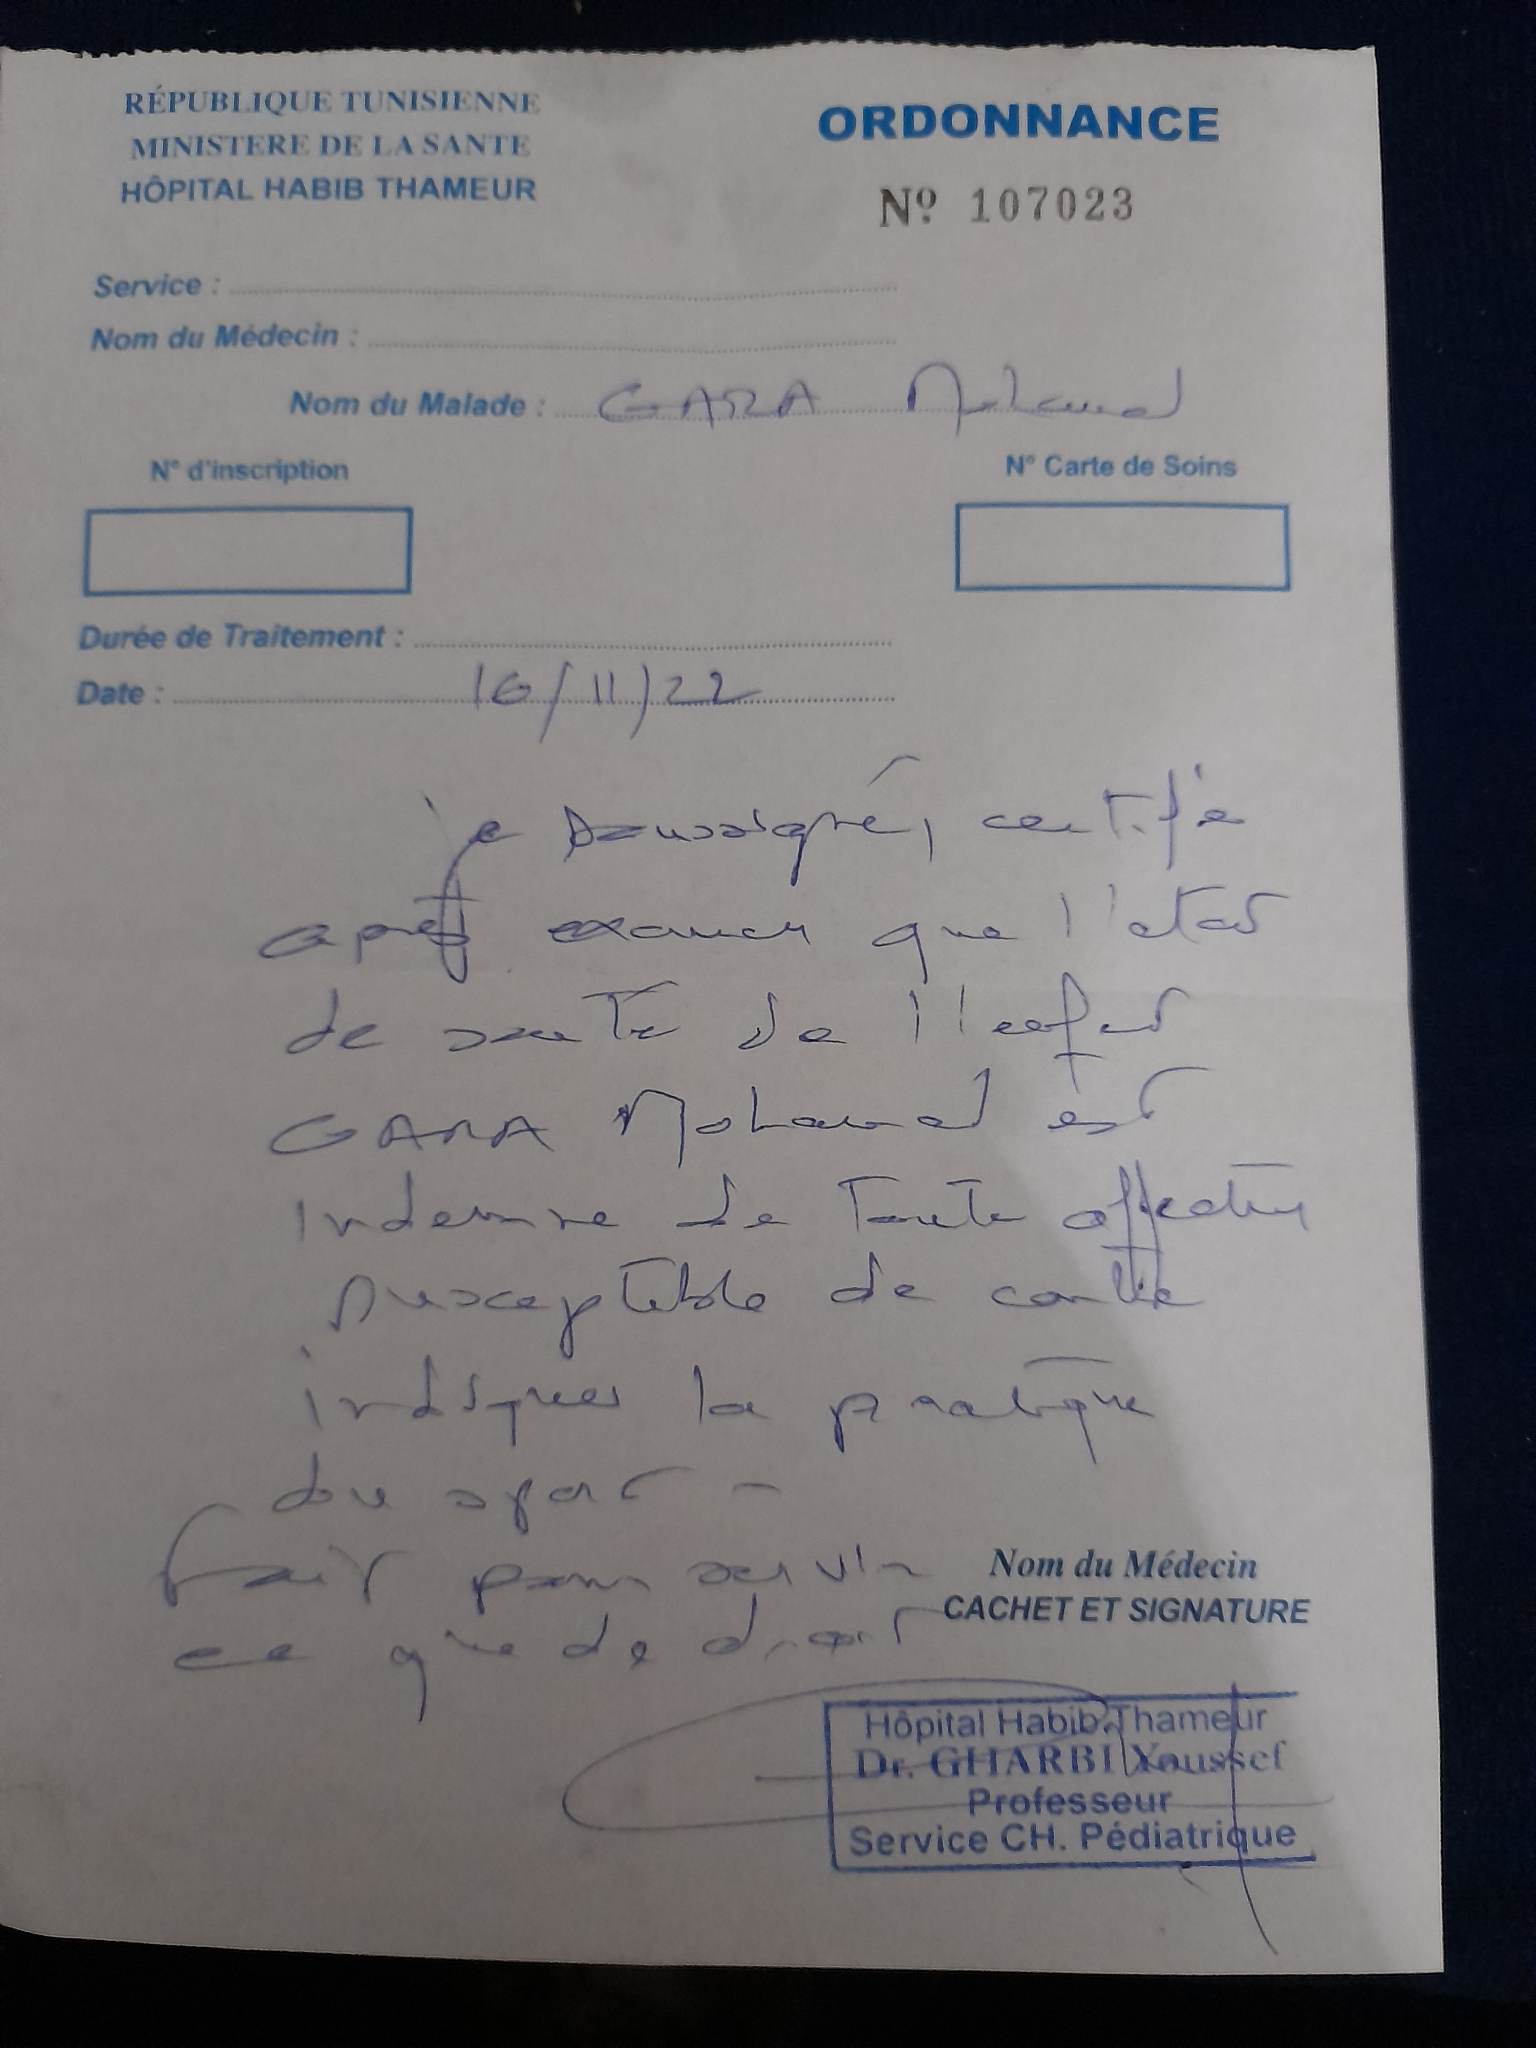 RÉPUBLIQUE TUNISIENNE
MINISTERE DE LA SANTE
HÔPITAL HABIB THAMEUR
ORDONNANCE
Nº 107023
Service :
Nom du Médecin :
Nom du Malade : GARA Mohamed
N° d'inscription
N° Carte de Soins
Durée de Traitement :
Date : 16/11/22
je soussigné, certifie
après examen que l'état
de santé de l'enfant
GARA Mohamed est
indemne de toute affection
susceptible de contre
indiquer la pratique
du sport -
Fait pour servir
ce que de droit
Nom du Médecin
CACHET ET SIGNATURE
Hôpital Habib Thameur
Dr. GHARBI Youssef
Professeur
Service CH. Pédiatrique